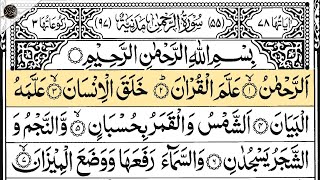 اٰیَاتُهَا ٧٨ (٥٥) سُوْرَةُ الرَّحْمٰنِ مَدَنِيَّةٌ (٩٧) رُكُوْعَاتُهَا ٣
بِسْمِ اللّٰهِ الرَّحْمٰنِ الرَّحِيْمِ
اَلرَّحْمٰنُ ۙ﴿١﴾ عَلَّمَ الْقُرْاٰنَ ؕ﴿٢﴾ خَلَقَ الْاِنْسَانَ ۙ﴿٣﴾ عَلَّمَهُ
الْبَيَانَ ﴿٤﴾ اَلشَّمْسُ وَ الْقَمَرُ بِحُسْبَانٍ ۪﴿٥﴾ وَّ النَّجْمُ وَ
الشَّجَرُ يَسْجُدٰنِ ﴿٦﴾ وَ السَّمَآءَ رَفَعَهَا وَ وَضَعَ الْمِيْزَانَ ۙ﴿٧﴾